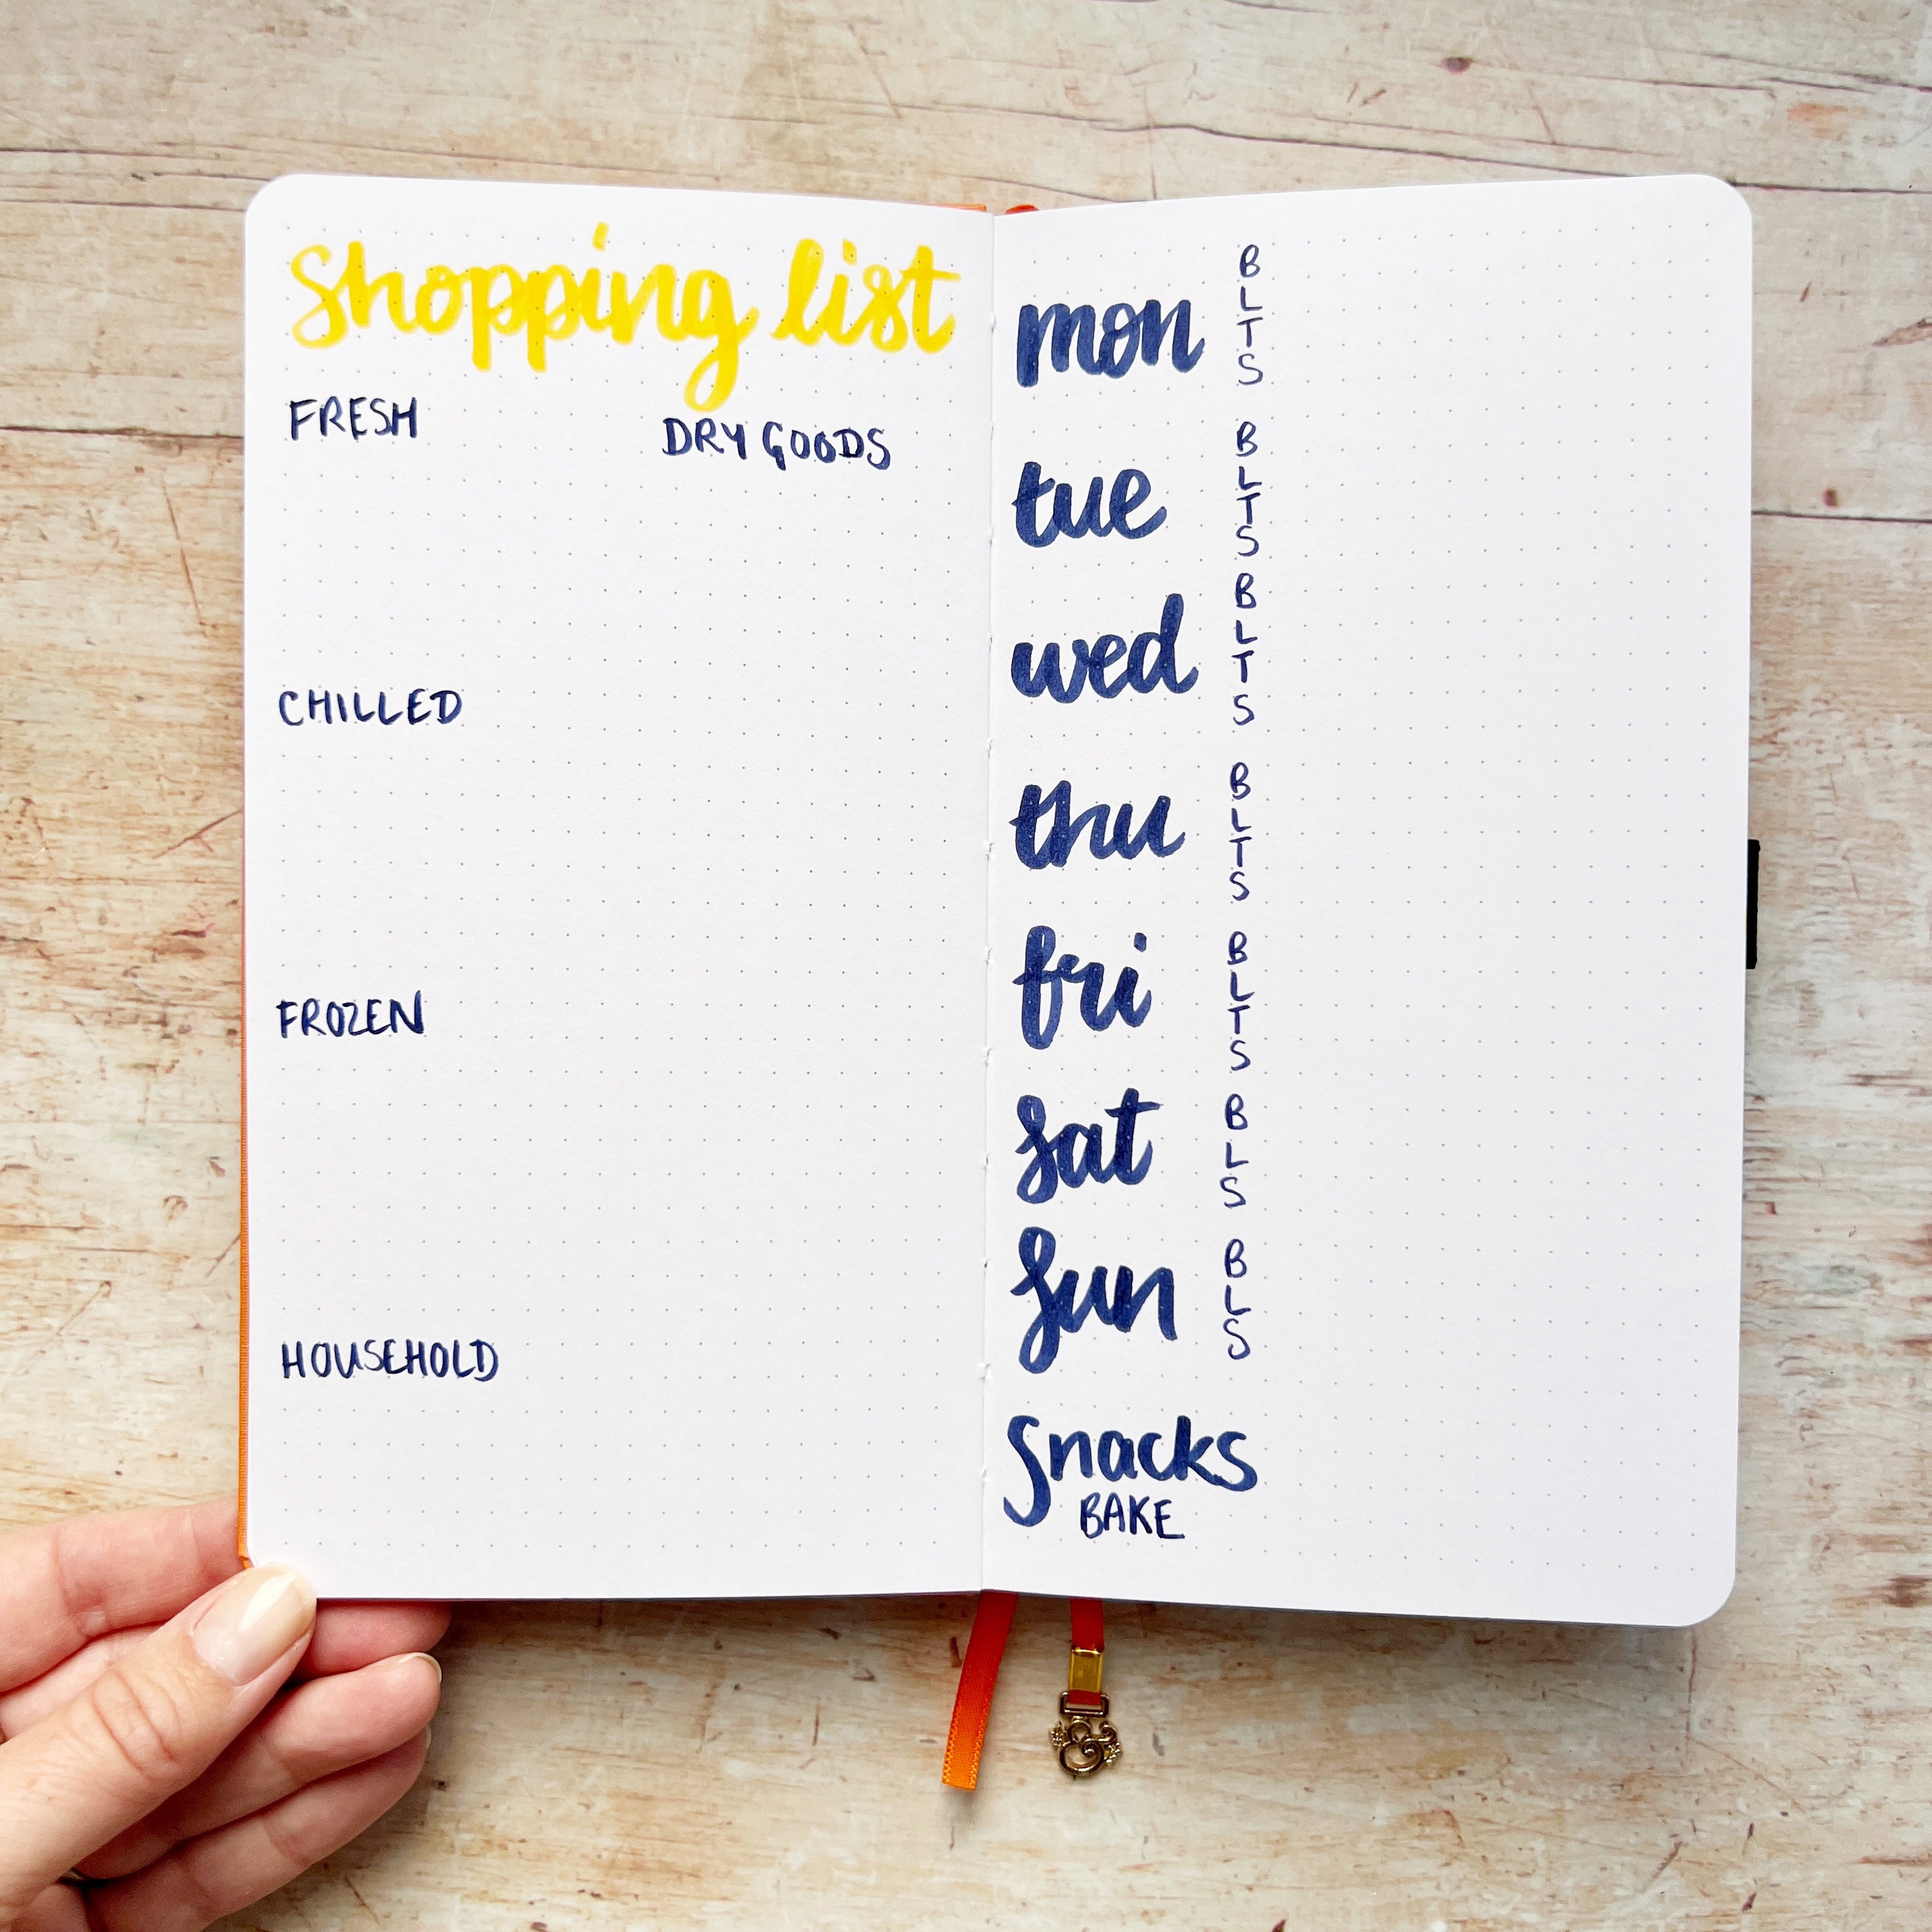 Shopping list
FRESH
DRY GOODS
CHILLED
FROZEN
HOUSEHOLD
mon
B
L
T
S
tue
B
L
T
S
wed
B
L
T
S
thu
B
L
T
S
fri
B
L
T
S
sat
B
L
S
sun
B
L
S
Snacks
BAKE